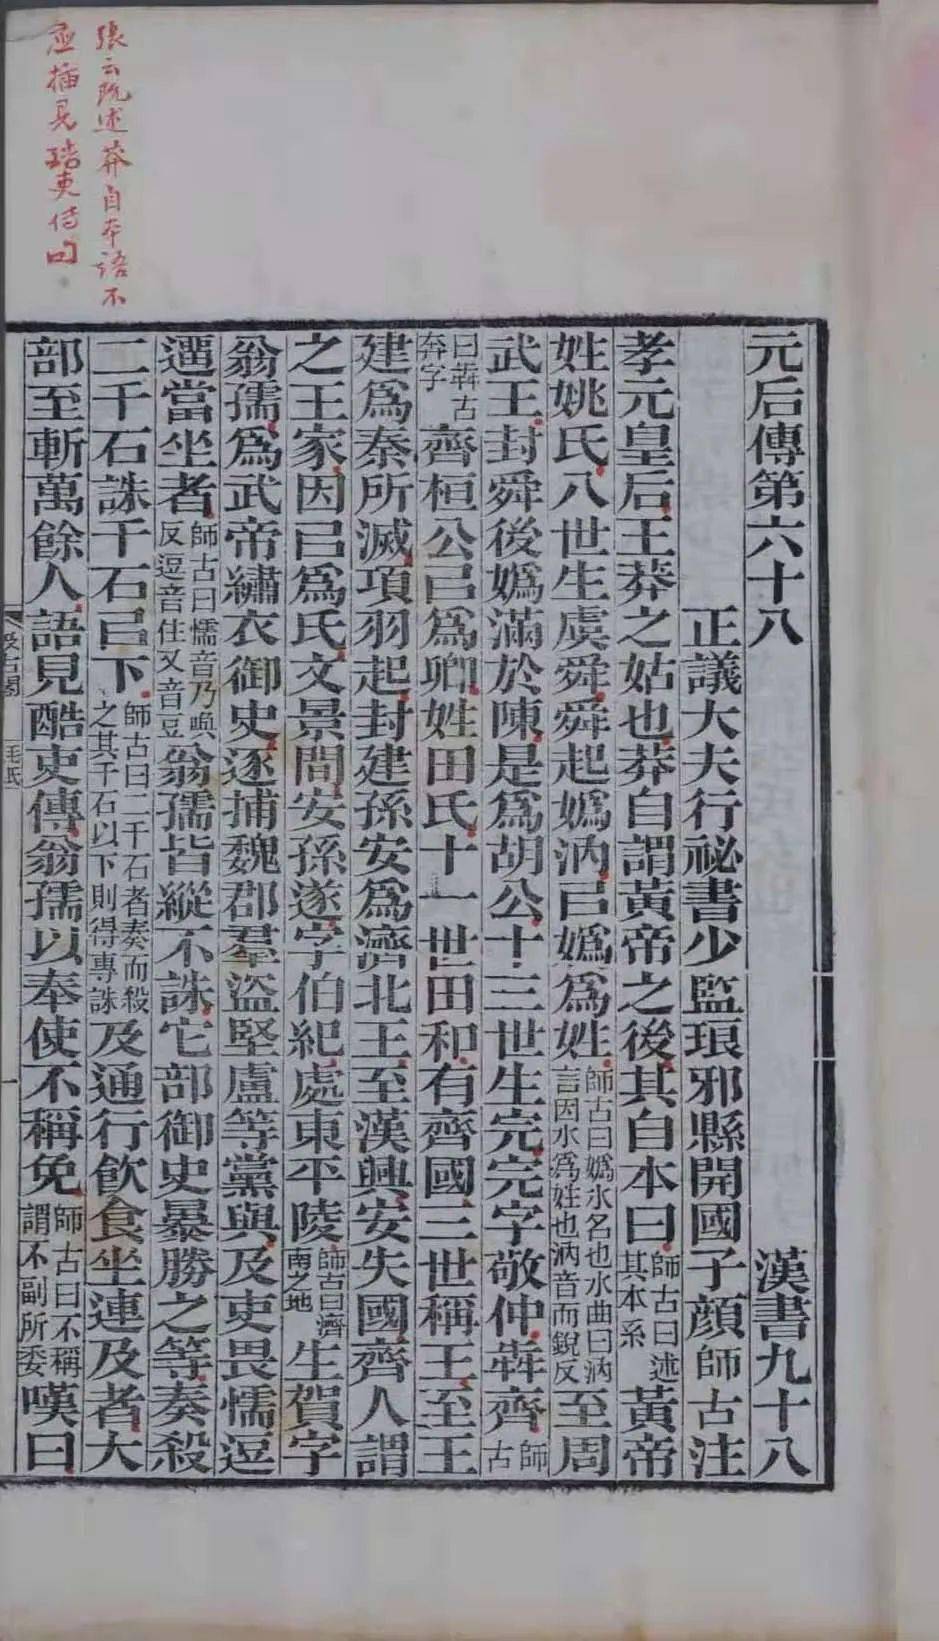 張云既述莽自本語不
應插見酷吏傳四
元后傳第六十八 漢書九十八
正議大夫行祕書少監琅邪縣開國子顏師古注
孝元皇后王莽之姑也莽自謂黃帝之後其自本曰師古曰述其本系黃帝
姓姚氏八世生虞舜舜起嬀汭㠯嬀爲姓師古曰嬀水名也水曲曰汭言因水爲姓也汭音而銳反至周
武王封舜後嬀滿於陳是爲胡公十三世生完完字敬仲犇齊師古
曰犇古奔字齊桓公㠯爲卿姓田氏十一世田和有齊國三世稱王至王
建爲秦所滅項羽起封建孫安爲濟北王至漢興安失國齊人謂
之王家因㠯爲氏文景閒安孫遂字伯紀處東平陵師古曰濟南之地生賀字
翁孺爲武帝繡衣御史逐捕魏郡羣盜堅盧等黨與及吏畏懦逗
遛當坐者師古曰懦音乃喚反逗音住又音豆翁孺皆縱不誅它部御史暴勝之等奏殺
二千石誅千石㠯下師古曰二千石者奏而殺之其千石以下則得專誅及通行飲食坐連及者大
部至斬萬餘人語見酷吏傳翁孺以奉使不稱免師古曰不稱謂不副所委嘆曰
汲古閣 毛氏 一